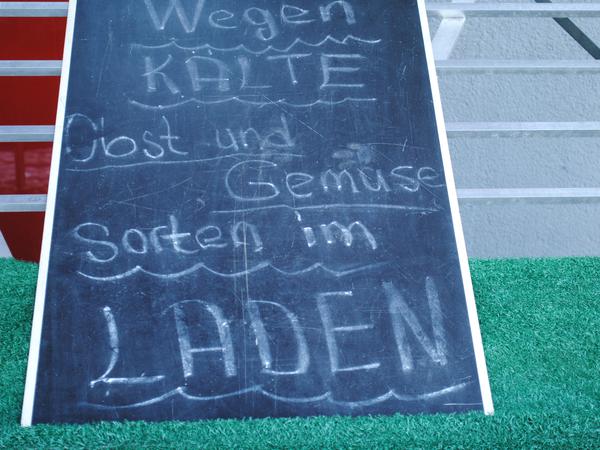 Wegen
KALTE
Obst und
Gemüse
Sorten im
LADEN